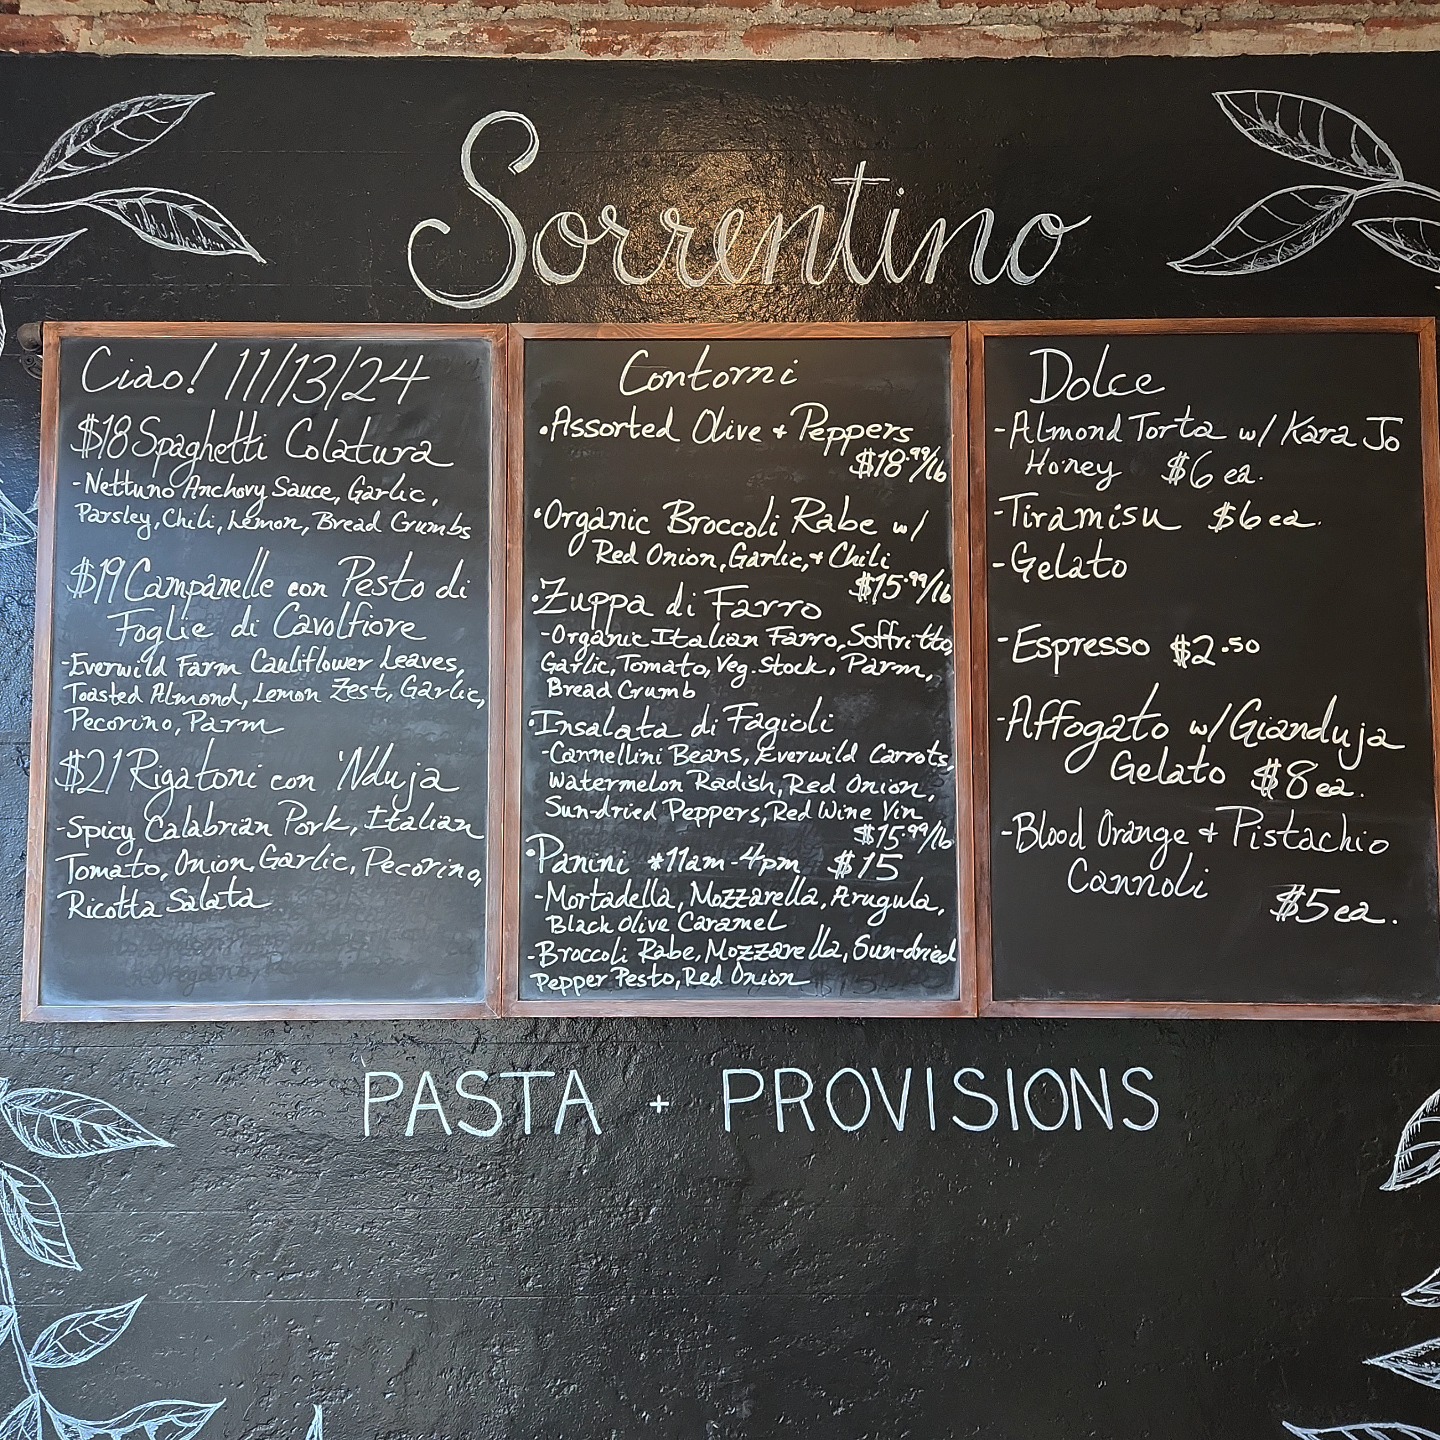 Sorrentino
Ciao! 11/13/24
$18 Spaghetti Colatura
- Nettuno Anchovy Sauce, Garlic,
Parsley, Chili, Lemon, Bread Crumbs
$19 Campanelle con Pesto di
Foglie di Cavolfiore
- Everwild Farm Cauliflower Leaves,
Toasted Almond, Lemon Zest, Garlic,
Pecorino, Parm
$21 Rigatoni con 'Nduja
- Spicy Calabrian Pork, Italian
Tomato, Onion, Garlic, Pecorino,
Ricotta Salata
Contorni
• Assorted Olive + Peppers
$18.99/lb
• Organic Broccoli Rabe w/
Red Onion, Garlic, + Chili
$15.99/lb
• Zuppa di Farro
- Organic Italian Farro, Soffritto,
Garlic, Tomato, Veg. Stock, Parm,
Bread Crumb
• Insalata di Fagioli
- Cannellini Beans, Everwild Carrots,
Watermelon Radish, Red Onion,
Sun-dried Peppers, Red Wine Vin
$15.99/lb
• Panini *11am-4pm $15
- Mortadella, Mozzarella, Arugula,
Black Olive Caramel
- Broccoli Rabe, Mozzarella, Sun-dried
Pepper Pesto, Red Onion
Dolce
- Almond Torta w/ Kara Jo
Honey $6 ea.
- Tiramisu $6 ea.
- Gelato
- Espresso $2.50
- Affogato w/ Gianduja
Gelato $8 ea.
- Blood Orange + Pistachio
Cannoli
$5 ea.
PASTA + PROVISIONS